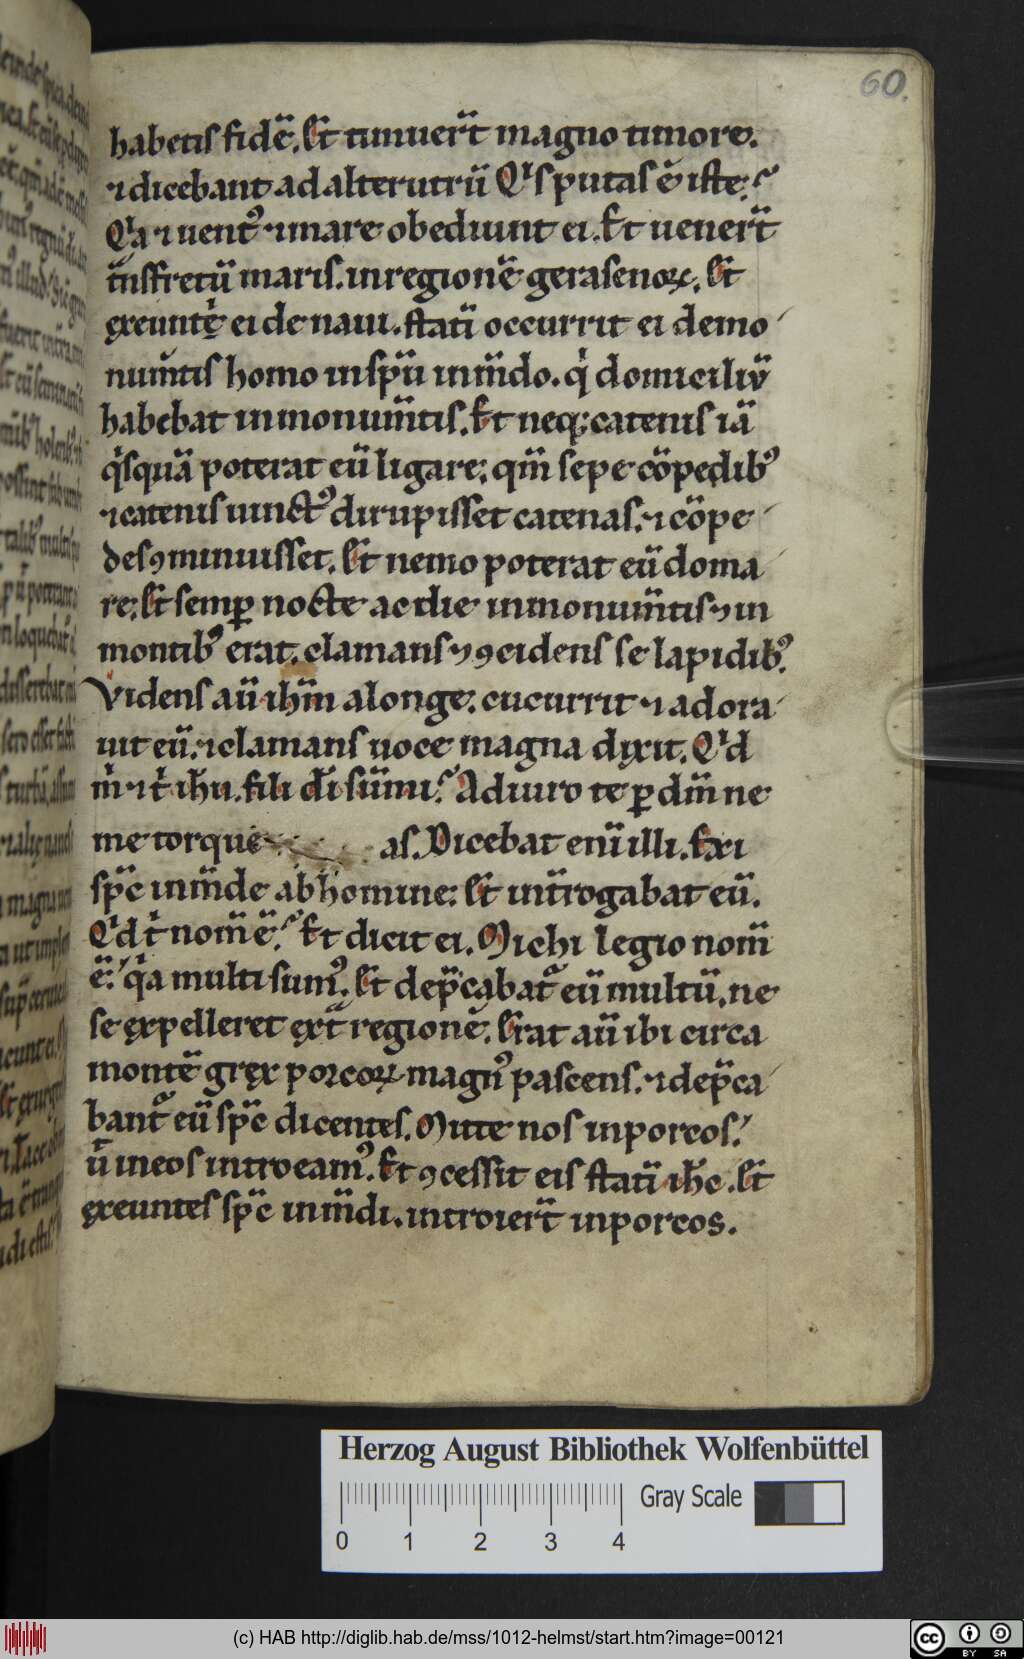 60.
habetis fidē. Et timuer̄t magno timore.
⁊ dicebant ad alterutrū Qͥs putas ē iste?
Qͥa ⁊ uentꝰ ⁊ mare obediunt ei. Et uener̄t
t̄nsfretū maris. in regionē gerasenoꝝ. Et
exeuntė ei de naui. statī occurrit ei demo
num̄tis homo in spū inm̄do. qͥ domiciliū
habebat in monum̄tis. Et neq; catenis iā
qͥsquā poterat eū ligare; qm̄ sepe cōpedibꝰ
⁊ catenis uinctꝰ dirupisset catenas. ⁊ cōpe
des ꝯminuisset. Et nemo poterat eū doma
re; Et semꝑ nocte ac die in monum̄tis ⁊ in
montibꝰ erat. clamans ⁊ ꝯcidens se lapidibꝰ.
Videns aū ihm̄ a longe; cucurrit ⁊ adora
uit eū. ⁊ clamans uoce magna dixit. Qͥd
mͥ ⁊ tͥ ihu̅. fili di̅ sūmi? Adiuro te ꝑ dm̄ ne
me torque as. Dicebat enī illi. Exi
spc̄ inm̄de ab homine; Et int̄rogabat eū.
Qͥd tͥ nom̄ ē? Et dicit ei. Michi legio nom̄
ē; qͥa multi sumꝰ. Et dep̄cabat̄ eū multū. ne
se expelleret ext̄ regionē. Erat aū ibi circa
montē grex porcoꝝ magnꝰ pascens. ⁊ dep̄ca
bant̄ eū spc̄ dicentes. Mitte nos in porcos.
ut̄ in eos introeamꝰ. Et ꝯcessit eis statī ihc̄. Et
exeuntes spc̄ inm̄di. introier̄t in porcos.
Herzog August Bibliothek Wolfenbüttel
Gray Scale
0 1 2 3 4
(c) HAB http://diglib.hab.de/mss/1012-helmst/start.htm?image=00121
cc BY SA